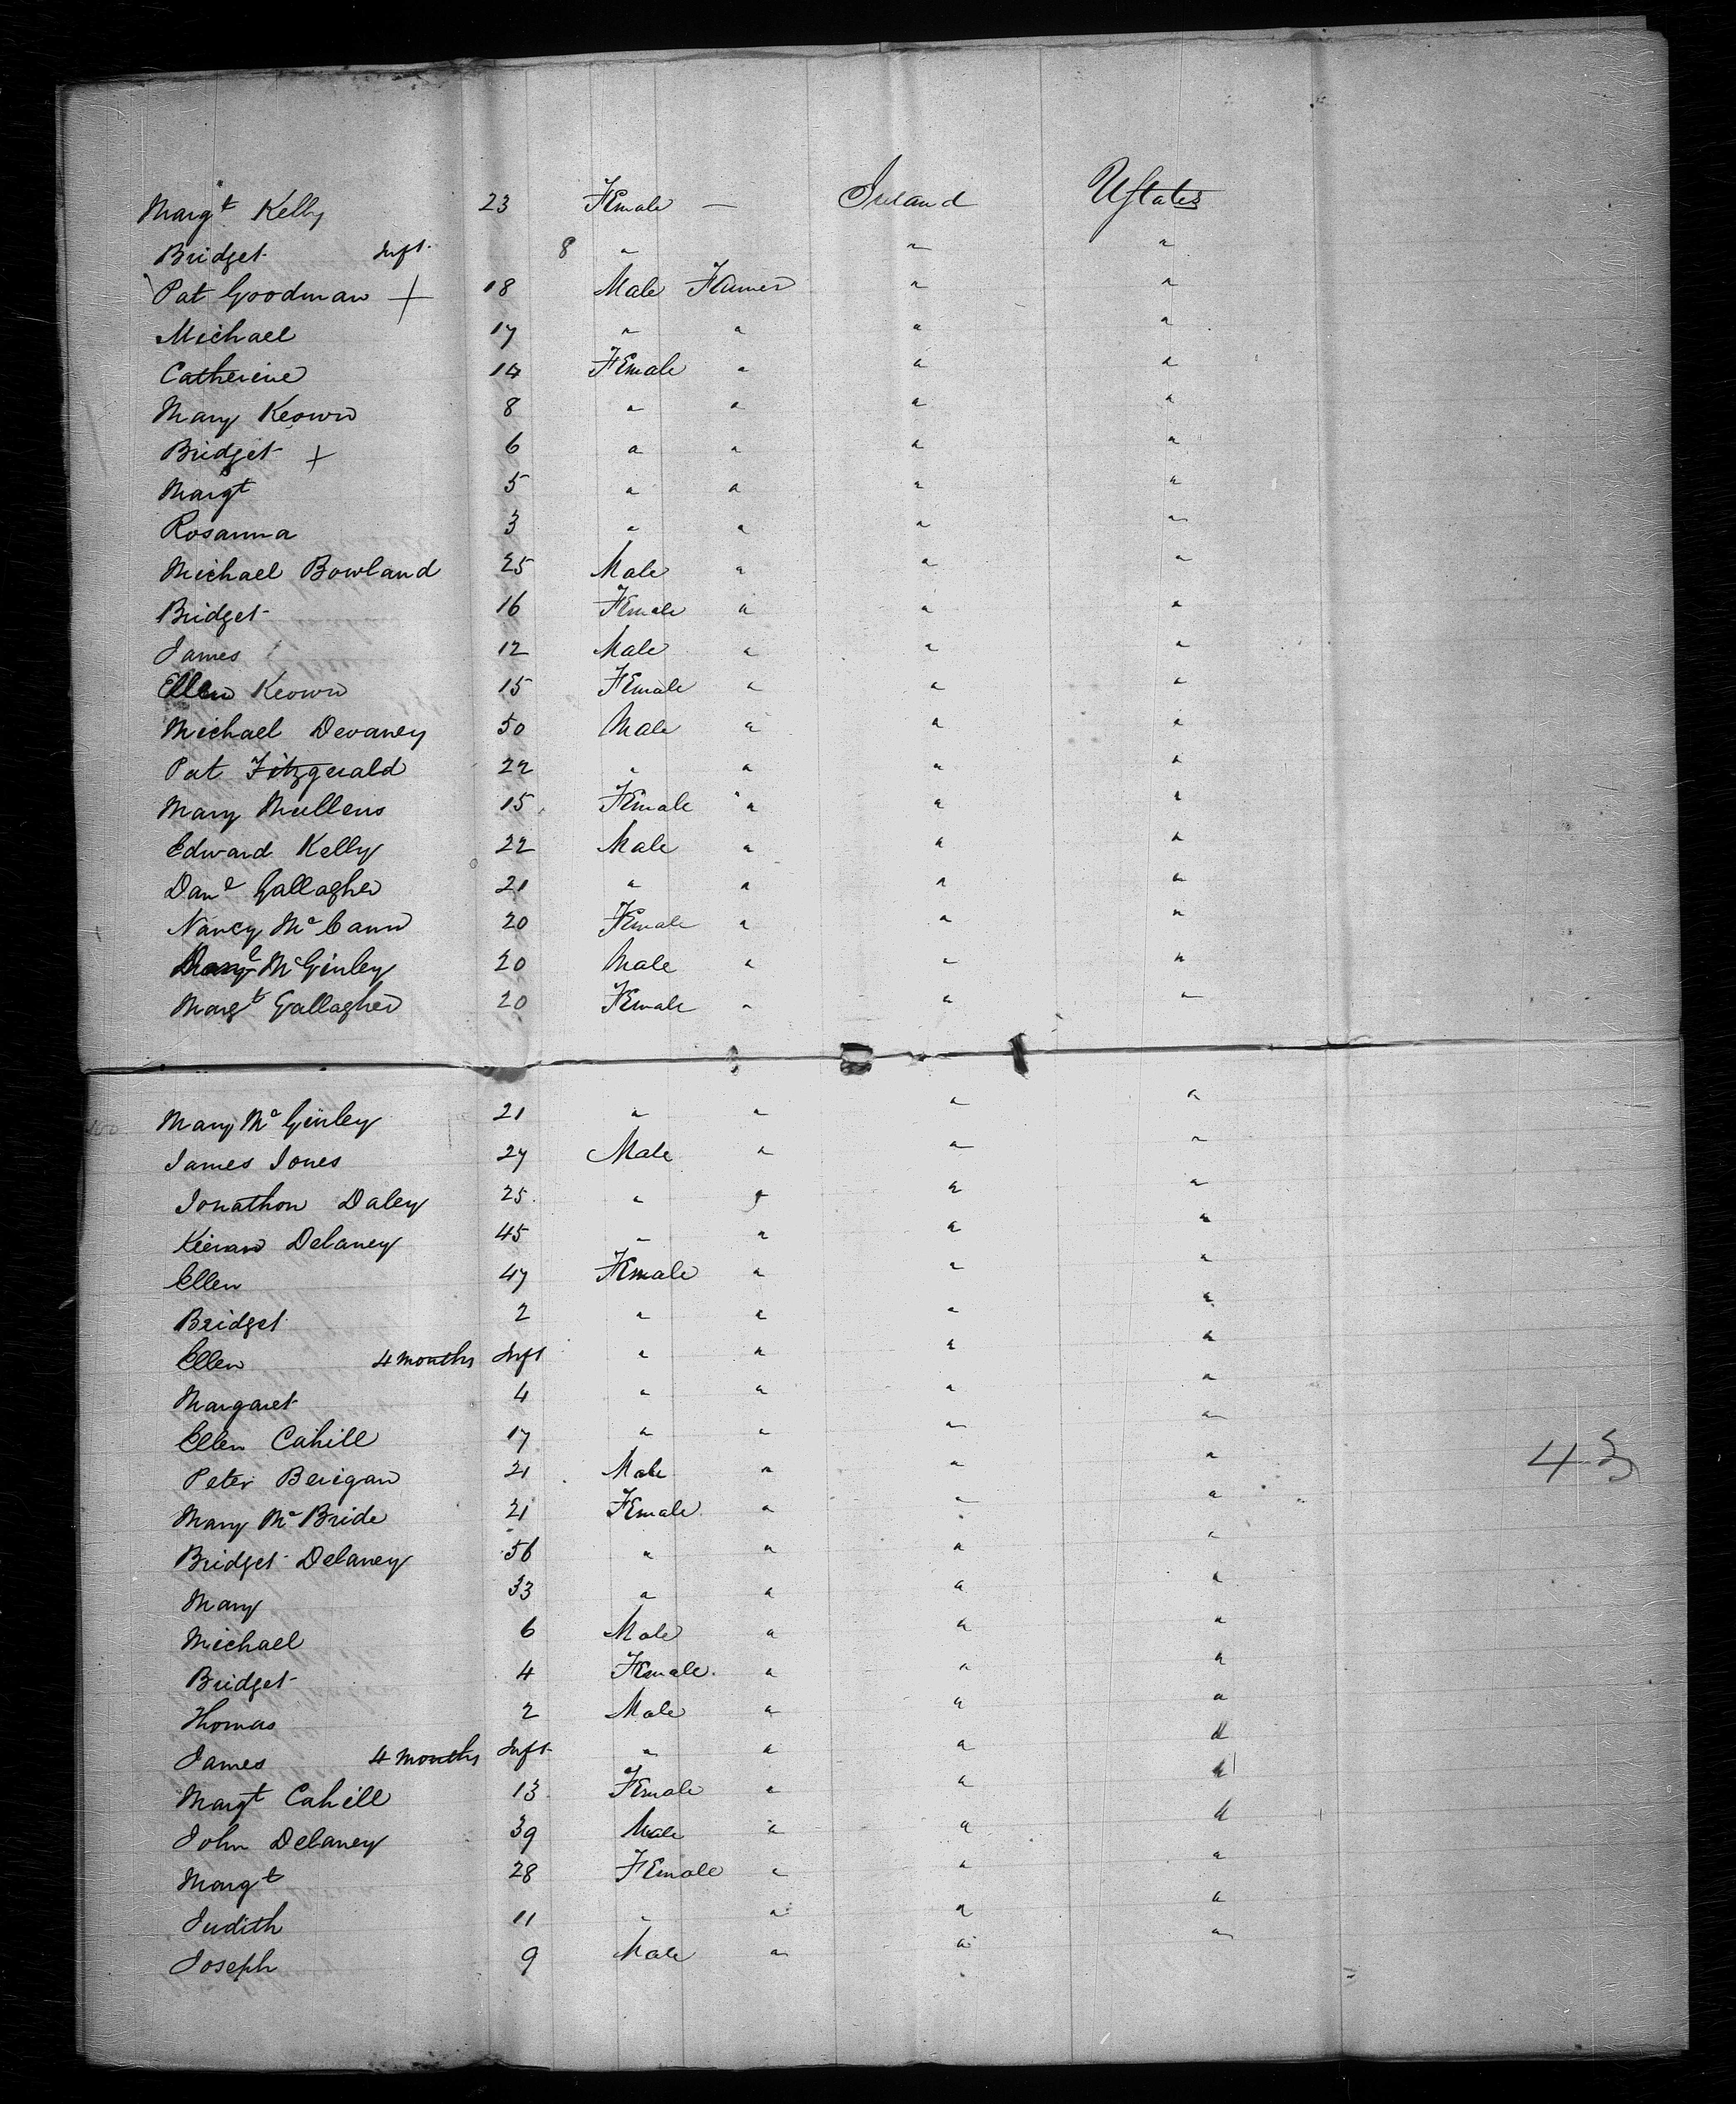 Margt Kelly 23 Female — Ireland Ustates
Bridget Inft 8 " " "
Pat Goodman + 18 Male Farmer " "
Michael 17 " " " "
Catherine 14 Female " " "
Mary Keown 8 " " " "
Bridget + 6 " " " "
Margt 5 " " " "
Rosanna 3 " " " "
Michael Bowland 25 Male " " "
Bridget 16 Female " " "
James 12 Male " " "
Ellen Keown 15 Female " " "
Michael Devaney 50 Male " " "
Pat Fitzgerald 22 " " " "
Mary Mullens 15 Female " " "
Edward Kelly 22 Male " " "
Danl Gallagher 21 " " " "
Nancy McCann 20 Female " " "
Danl McGinley 20 Male " " "
Margt Gallagher 20 Female " " "
Mary McGinley 21 " " " "
James Jones 27 Male " " "
Jonathon Daley 25 " " " "
Kieran Delaney 45 " " " "
Ellen 47 Female " " "
Bridget 2 " " " "
Ellen 4 months Inft " " " "
Margaret 4 " " " "
Ellen Cahill 17 " " " "
Peter Berigan 21 Male " " "
43
Mary McBride 21 Female " " "
Bridget Delaney 56 " " " "
Mary 33 " " " "
Michael 6 Male " " "
Bridget 4 Female " " "
Thomas 2 Male " " "
James 4 months Inft " " " "
Margt Cahill 13 Female " " "
John Delaney 39 Male " " "
Margt 28 Female " " "
Judith 11 " " " "
Joseph 9 Male " " "